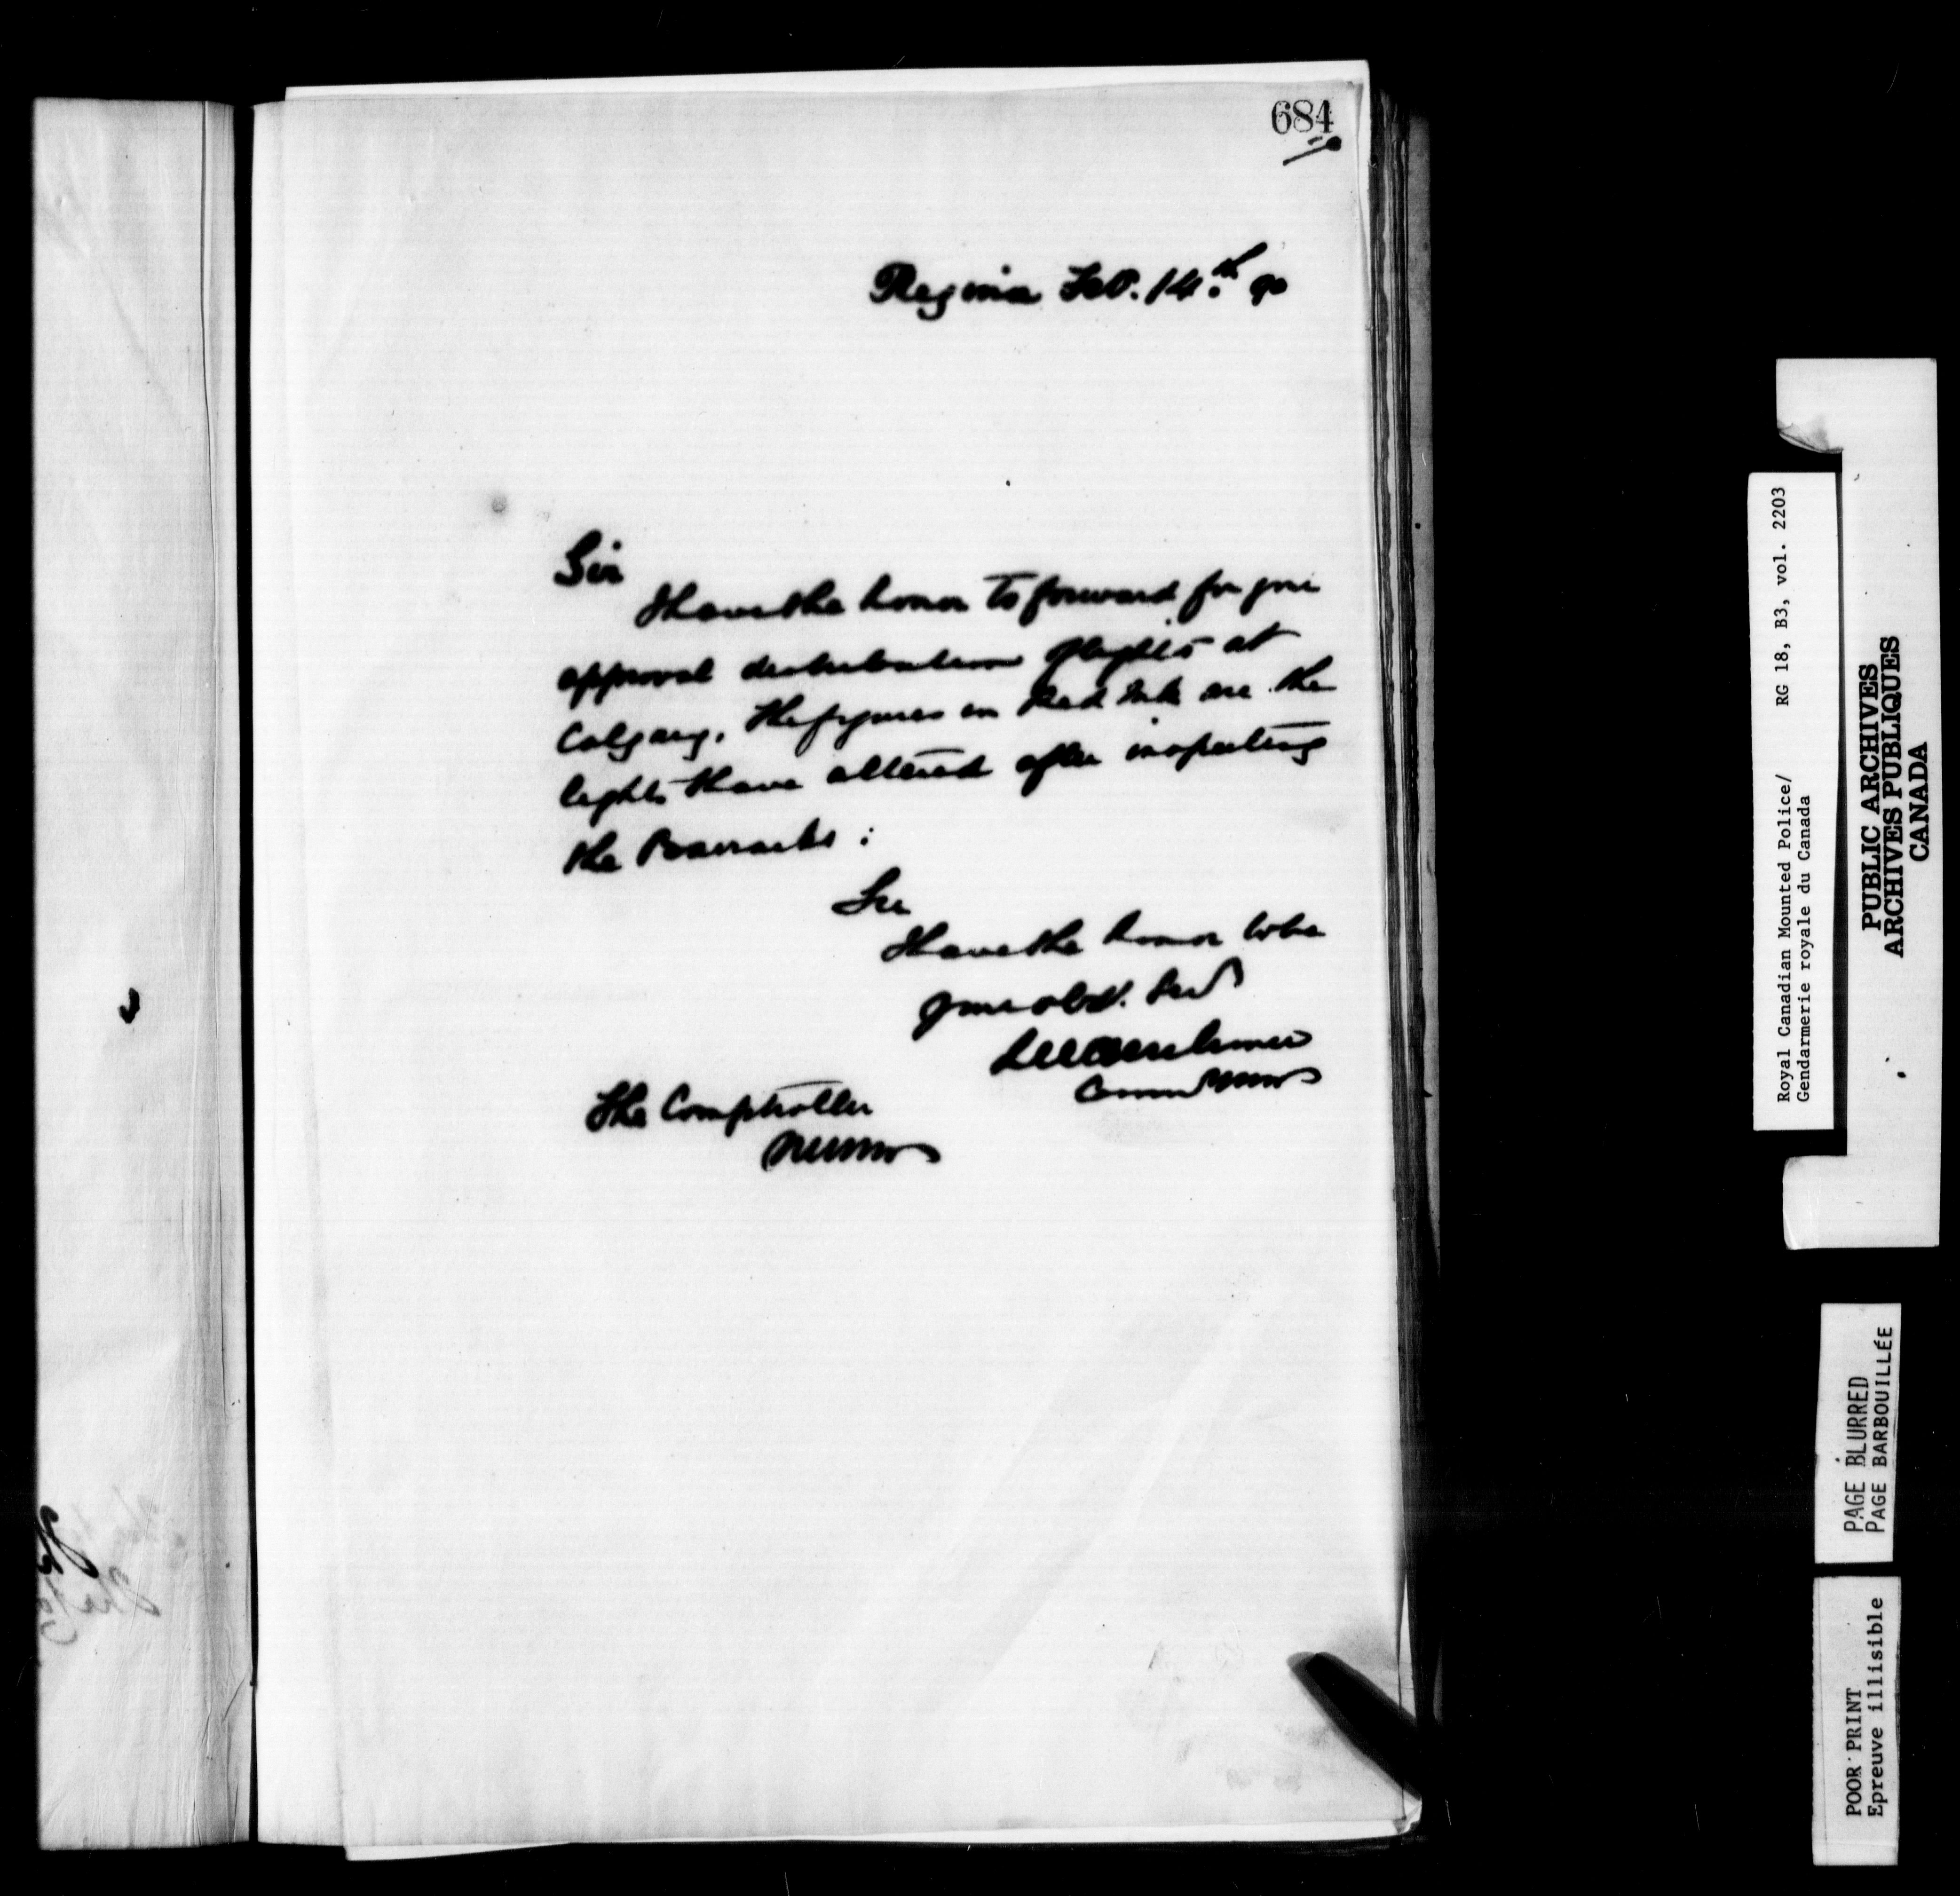 684
Regina Feb. 14th 90
Sir
I have the honor to forward for your
approval distribution of lights at
Calgary. The figures in Red Ink are the
lights I have altered after inspecting
the Barracks:
Sir
I have the honor to be
your obdt. Servt
Commr NWMP
The Comptroller
NWMP
Royal Canadian Mounted Police/ RG 18, B3, vol. 2203
Gendarmerie royale du Canada
PUBLIC ARCHIVES
ARCHIVES PUBLIQUES
CANADA
PAGE BLURRED
PAGE BARBOUILLÉE
POOR PRINT
Epreuve illisible